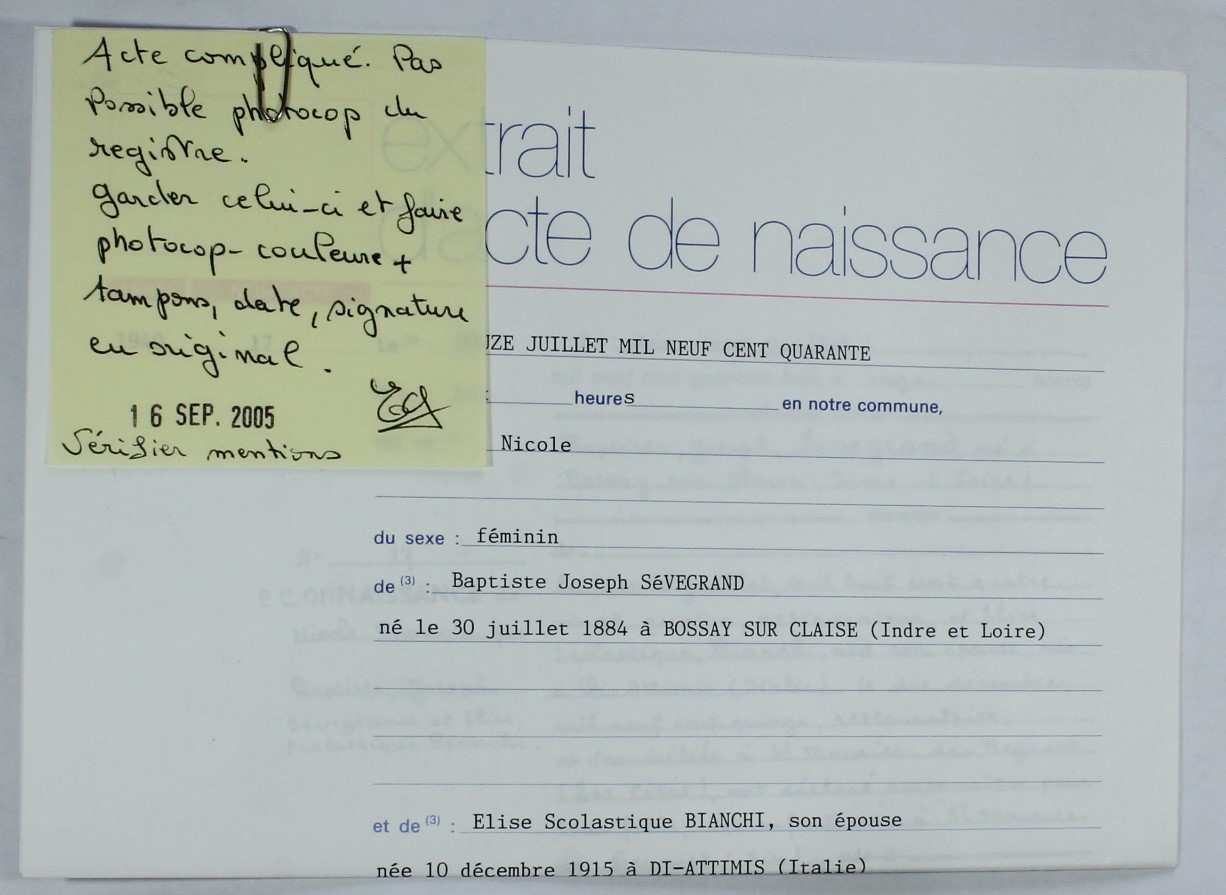 Acte compliqué. Pas
possible photocop du
registre.
garder celui-ci et faire
photocop-couleure +
tampons, date, signature
en original.
16 SEP. 2005
Vérifier mentions
extrait
d'acte de naissance
UZE JUILLET MIL NEUF CENT QUARANTE
heures en notre commune,
Nicole
du sexe : féminin
de (3) : Baptiste Joseph SéVEGRAND
né le 30 juillet 1884 à BOSSAY SUR CLAISE (Indre et Loire)
et de (3) : Elise Scolastique BIANCHI, son épouse
née 10 décembre 1915 à DI-ATTIMIS (Italie)